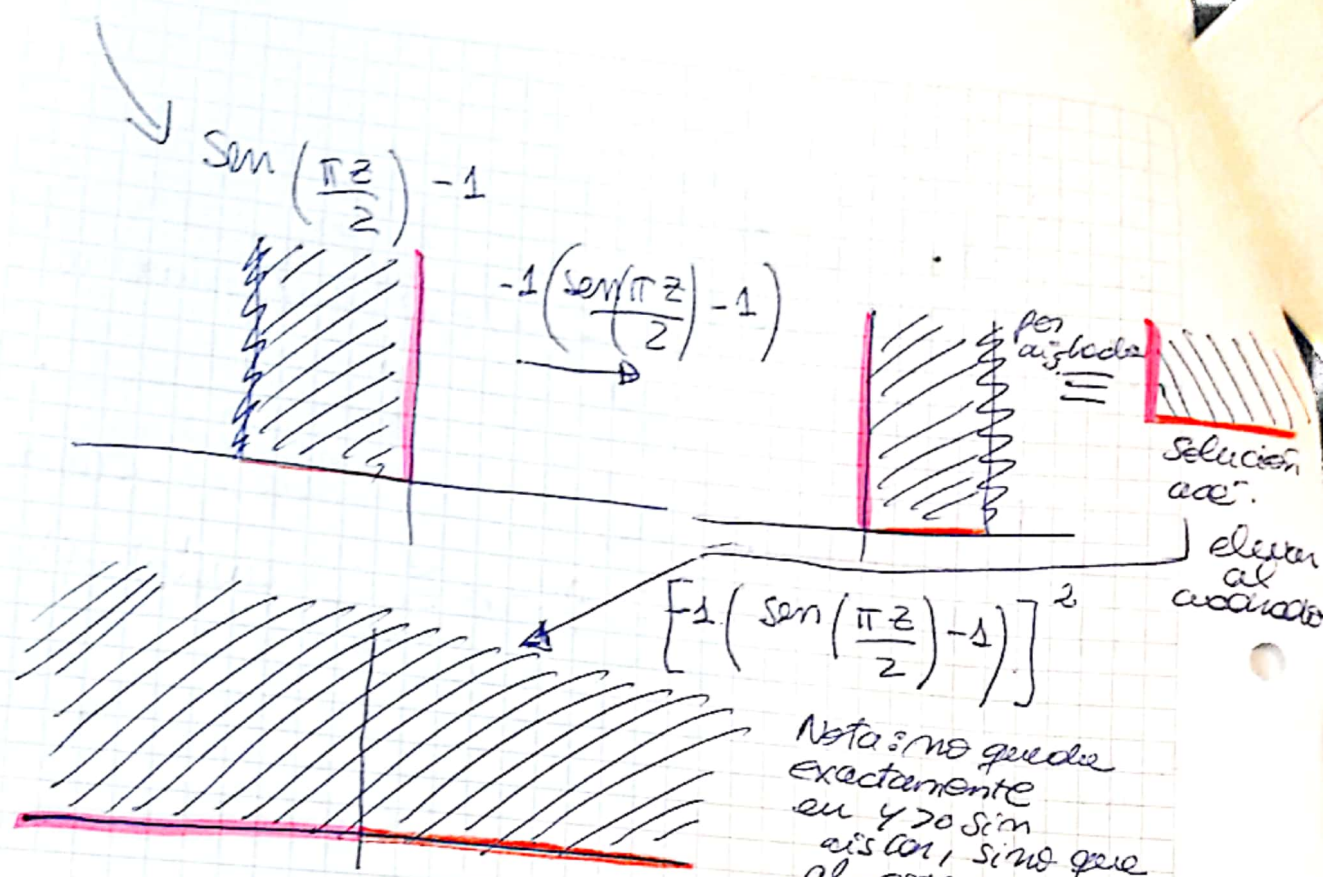 sen (πz/2) -1
-1(sen(πz/2)-1)
por
aislada
≡
solución
elevar
al
cuadrado
[-1(sen(πz/2)-1)]²
Nota: no queda
exactamente
en y>0 sin
aislar, sino que
al